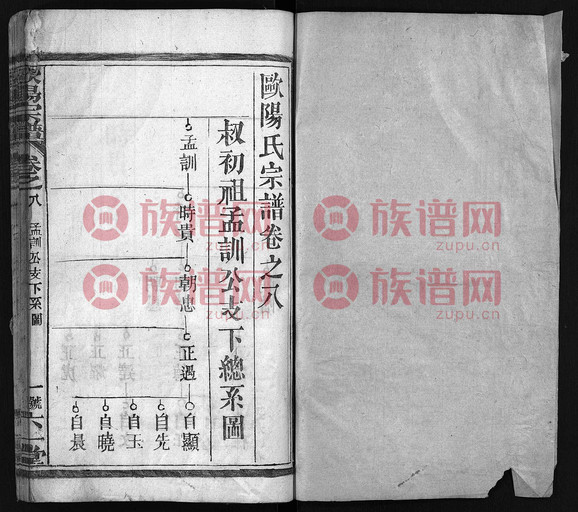 歐陽氏宗譜卷之八
叔初祖孟訓公支下總系圖
孟訓
時貴
朝忠
正遇
自顯
自先
自玉
自曉
自晨
歐陽宗譜
卷之八
孟訓公支下系圖
一號
六一堂
族谱网
zupu.cn
族谱网
zupu.cn
族谱网
zupu.cn
族谱网
zupu.cn